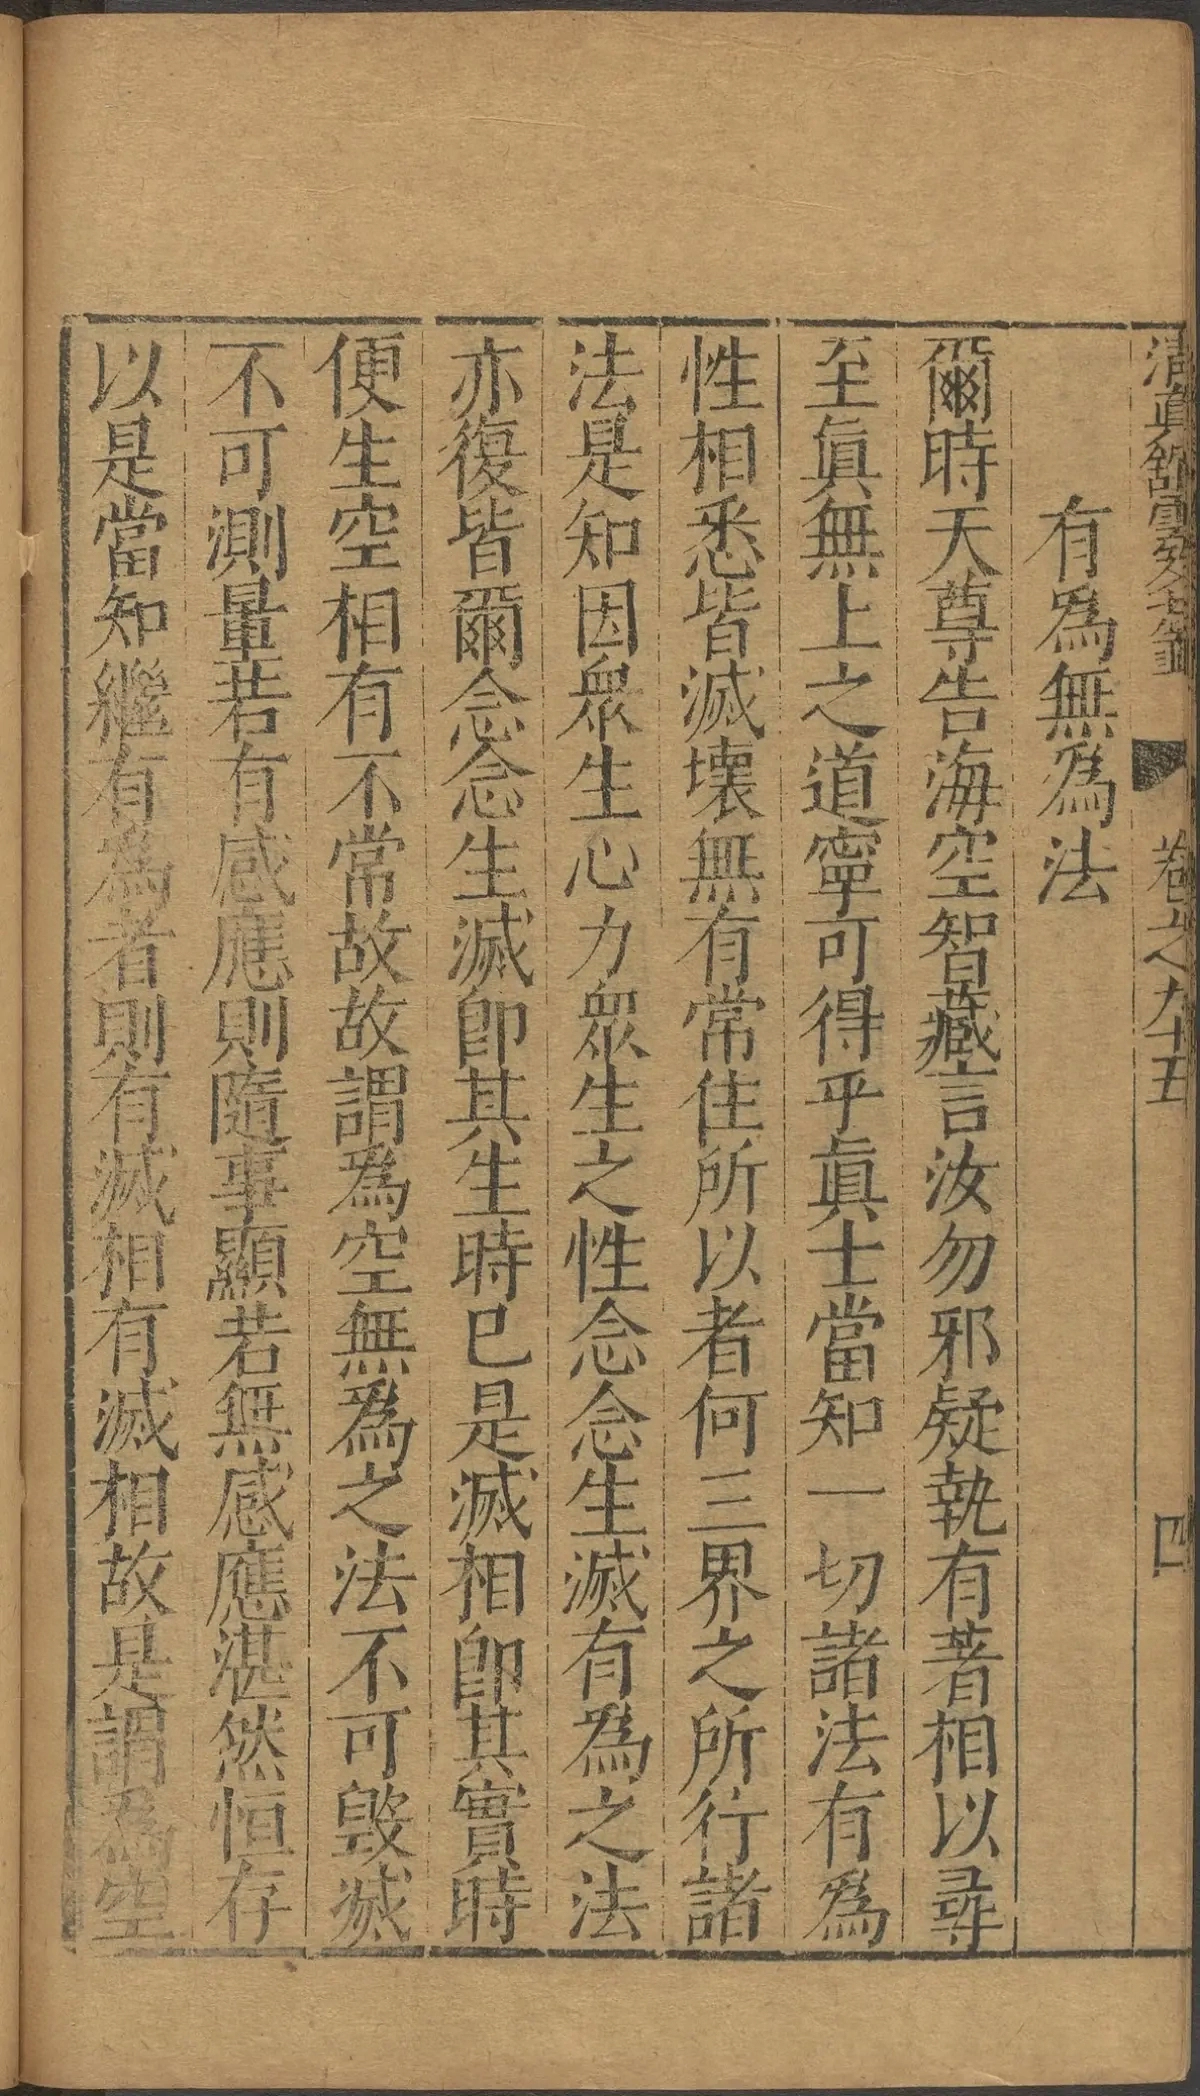 卷之九十五
四
有爲無爲法
爾時天尊告海空智藏言汝勿邪疑執有著相以尋
至眞無上之道寧可得乎眞士當知一切諸法有爲
性相悉皆滅壞無有常住所以者何三界之所行諸
法是知因衆生心力衆生之性念念生滅有爲之法
亦復皆爾念念生滅卽其生時巳是滅相卽其實時
便生空相有不常故故謂爲空無爲之法不可毀滅
不可測量若有感應則隨事顯若無感應湛然恒存
以是當知繼有為者則有滅相有滅相故是謂為空